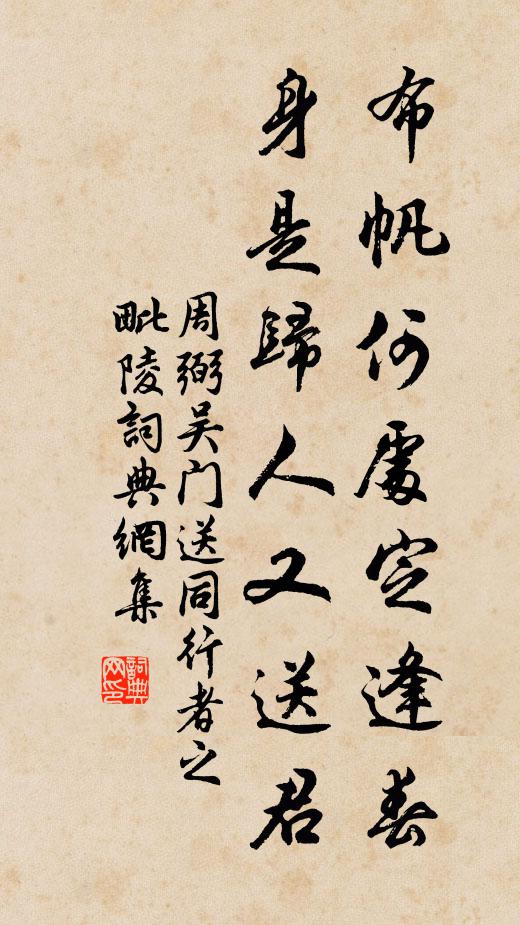 布帆何處定逢春
身是歸人又送君
周弼吴门送同行者之
毗陵詞典網集
詞典网印